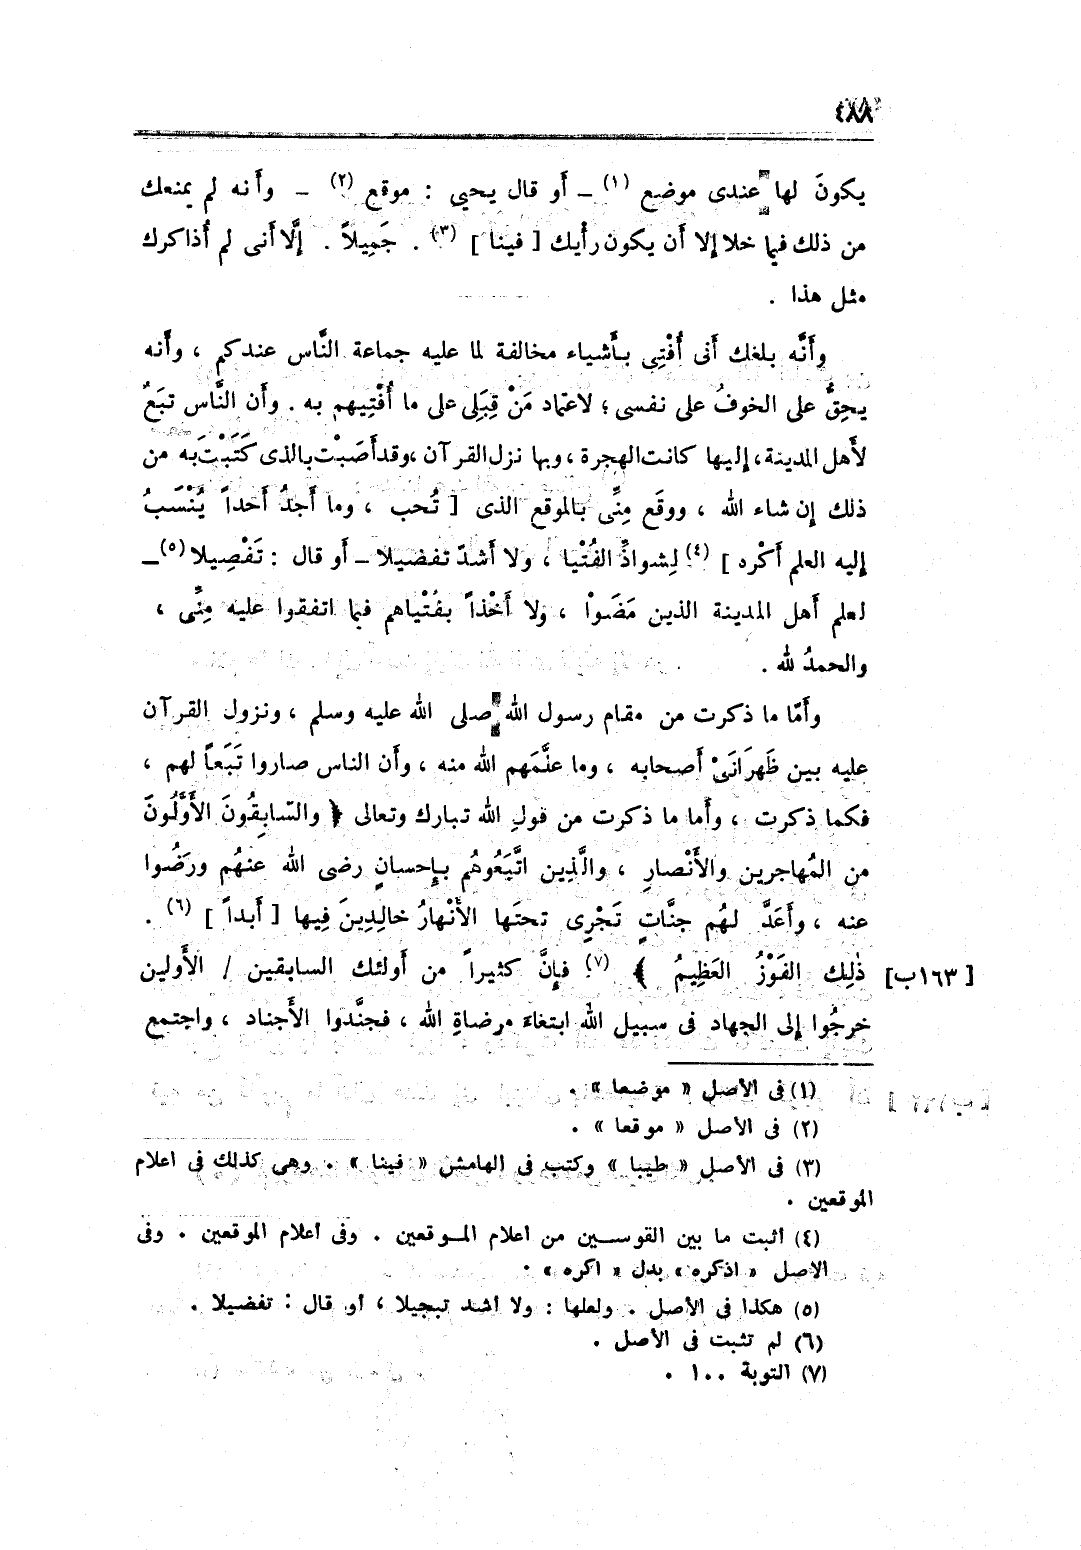 ٤٨٨
يكونَ لها عندى موضع (١) – أو قال يحيي : موقع (٢) – وأنه لم يمنعك
من ذلك فيما خلا إلا أن يكون رأيك [ فينا ] (٣) . جَمِيلاً . إلَّا أنى لم أُذاكرك
مثل هذا .
وأَنَّه بلغك أنى أُفْتِى بأَشياء مخالفة لما عليه جماعة النَّاس عندكم ، وأنه
يحِقُّ على الخوفُ على نفسى ؛ لاعتماد مَنْ قِبَلِى على ما أُفْتِيهم به . وأن النَّاس تبَعٌ
لأَهل المدينة ، إليها كانت الهجرة ، وبها نزل القرآن ، وقد أَصَبْت بالذى كَتَبْتَ به من
ذلك إن شاء الله ، ووقَع مِنِّى بالموقع الذى [ تُحب ، وما أَجدُ أَحداً يُنْسَبُ
إليه العلم أَكْره ] (٤) لِشواذِّ الفُتْيا ، ولا أشدّ تفضيلا – أو قال : تَفْصِيلا (٥) –
لعلم أَهل المدينة الذين مَضَواْ ، ولا أَخْذاً بفُتْياهم فيما اتفقوا عليه مِنِّى ،
والحمدُ لله .
وأَمّا ما ذكرت من مقام رسول الله صلى الله عليه وسلم ، ونزول القرآن
عليه بين ظَهرَانَىْ أَصحابه ، وما علَّمَهم الله منه ، وأَن الناس صاروا تَبَعاً لهم ،
فكما ذكرت ، وأَما ما ذكرت من قولِ الله تبارك وتعالى ﴿ والسّابِقُونَ الأَوَّلُونَ
من المُهاجرين والأَنْصارِ ، والَّذِين اتَّبَعُوهُم بإِحسانٍ رضى الله عنهُم ورَضُوا
عنه ، وأَعَدَّ لهُم جنَّاتٍ تَجْرِى تحتَها الأَنْهارُ خالِدِينَ فِيها [ أَبداً ] (٦) .
ذٰلِك الفَوْزُ العَظِيمُ ﴾ (٧) فإنَّ كثيراً من أولئك السابقين / الأَولين [ ١٦٣ب]
خرجُوا إلى الجهاد فى سبيل الله ابتغاءَ مرضاةِ الله ، فجنَّدوا الأَجناد ، واجتمع
(١) فى الأصل « موضعا » .
(٢) فى الأصل « موقعا » .
(٣) فى الأصل « طيبا » وكتب فى الهامش « فينا » . وهى كذلك فى اعلام
الموقعين .
(٤) أثبت ما بين القوسين من اعلام الموقعين . وفى اعلام الموقعين . وفى
الاصل « اذكره » بدل « اكره » .
(٥) هكذا فى الأصل . ولعلها : ولا أشد تبجيلا ، أو قال : تفضيلا .
(٦) لم تثبت فى الأصل .
(٧) التوبة ١٠٠ .